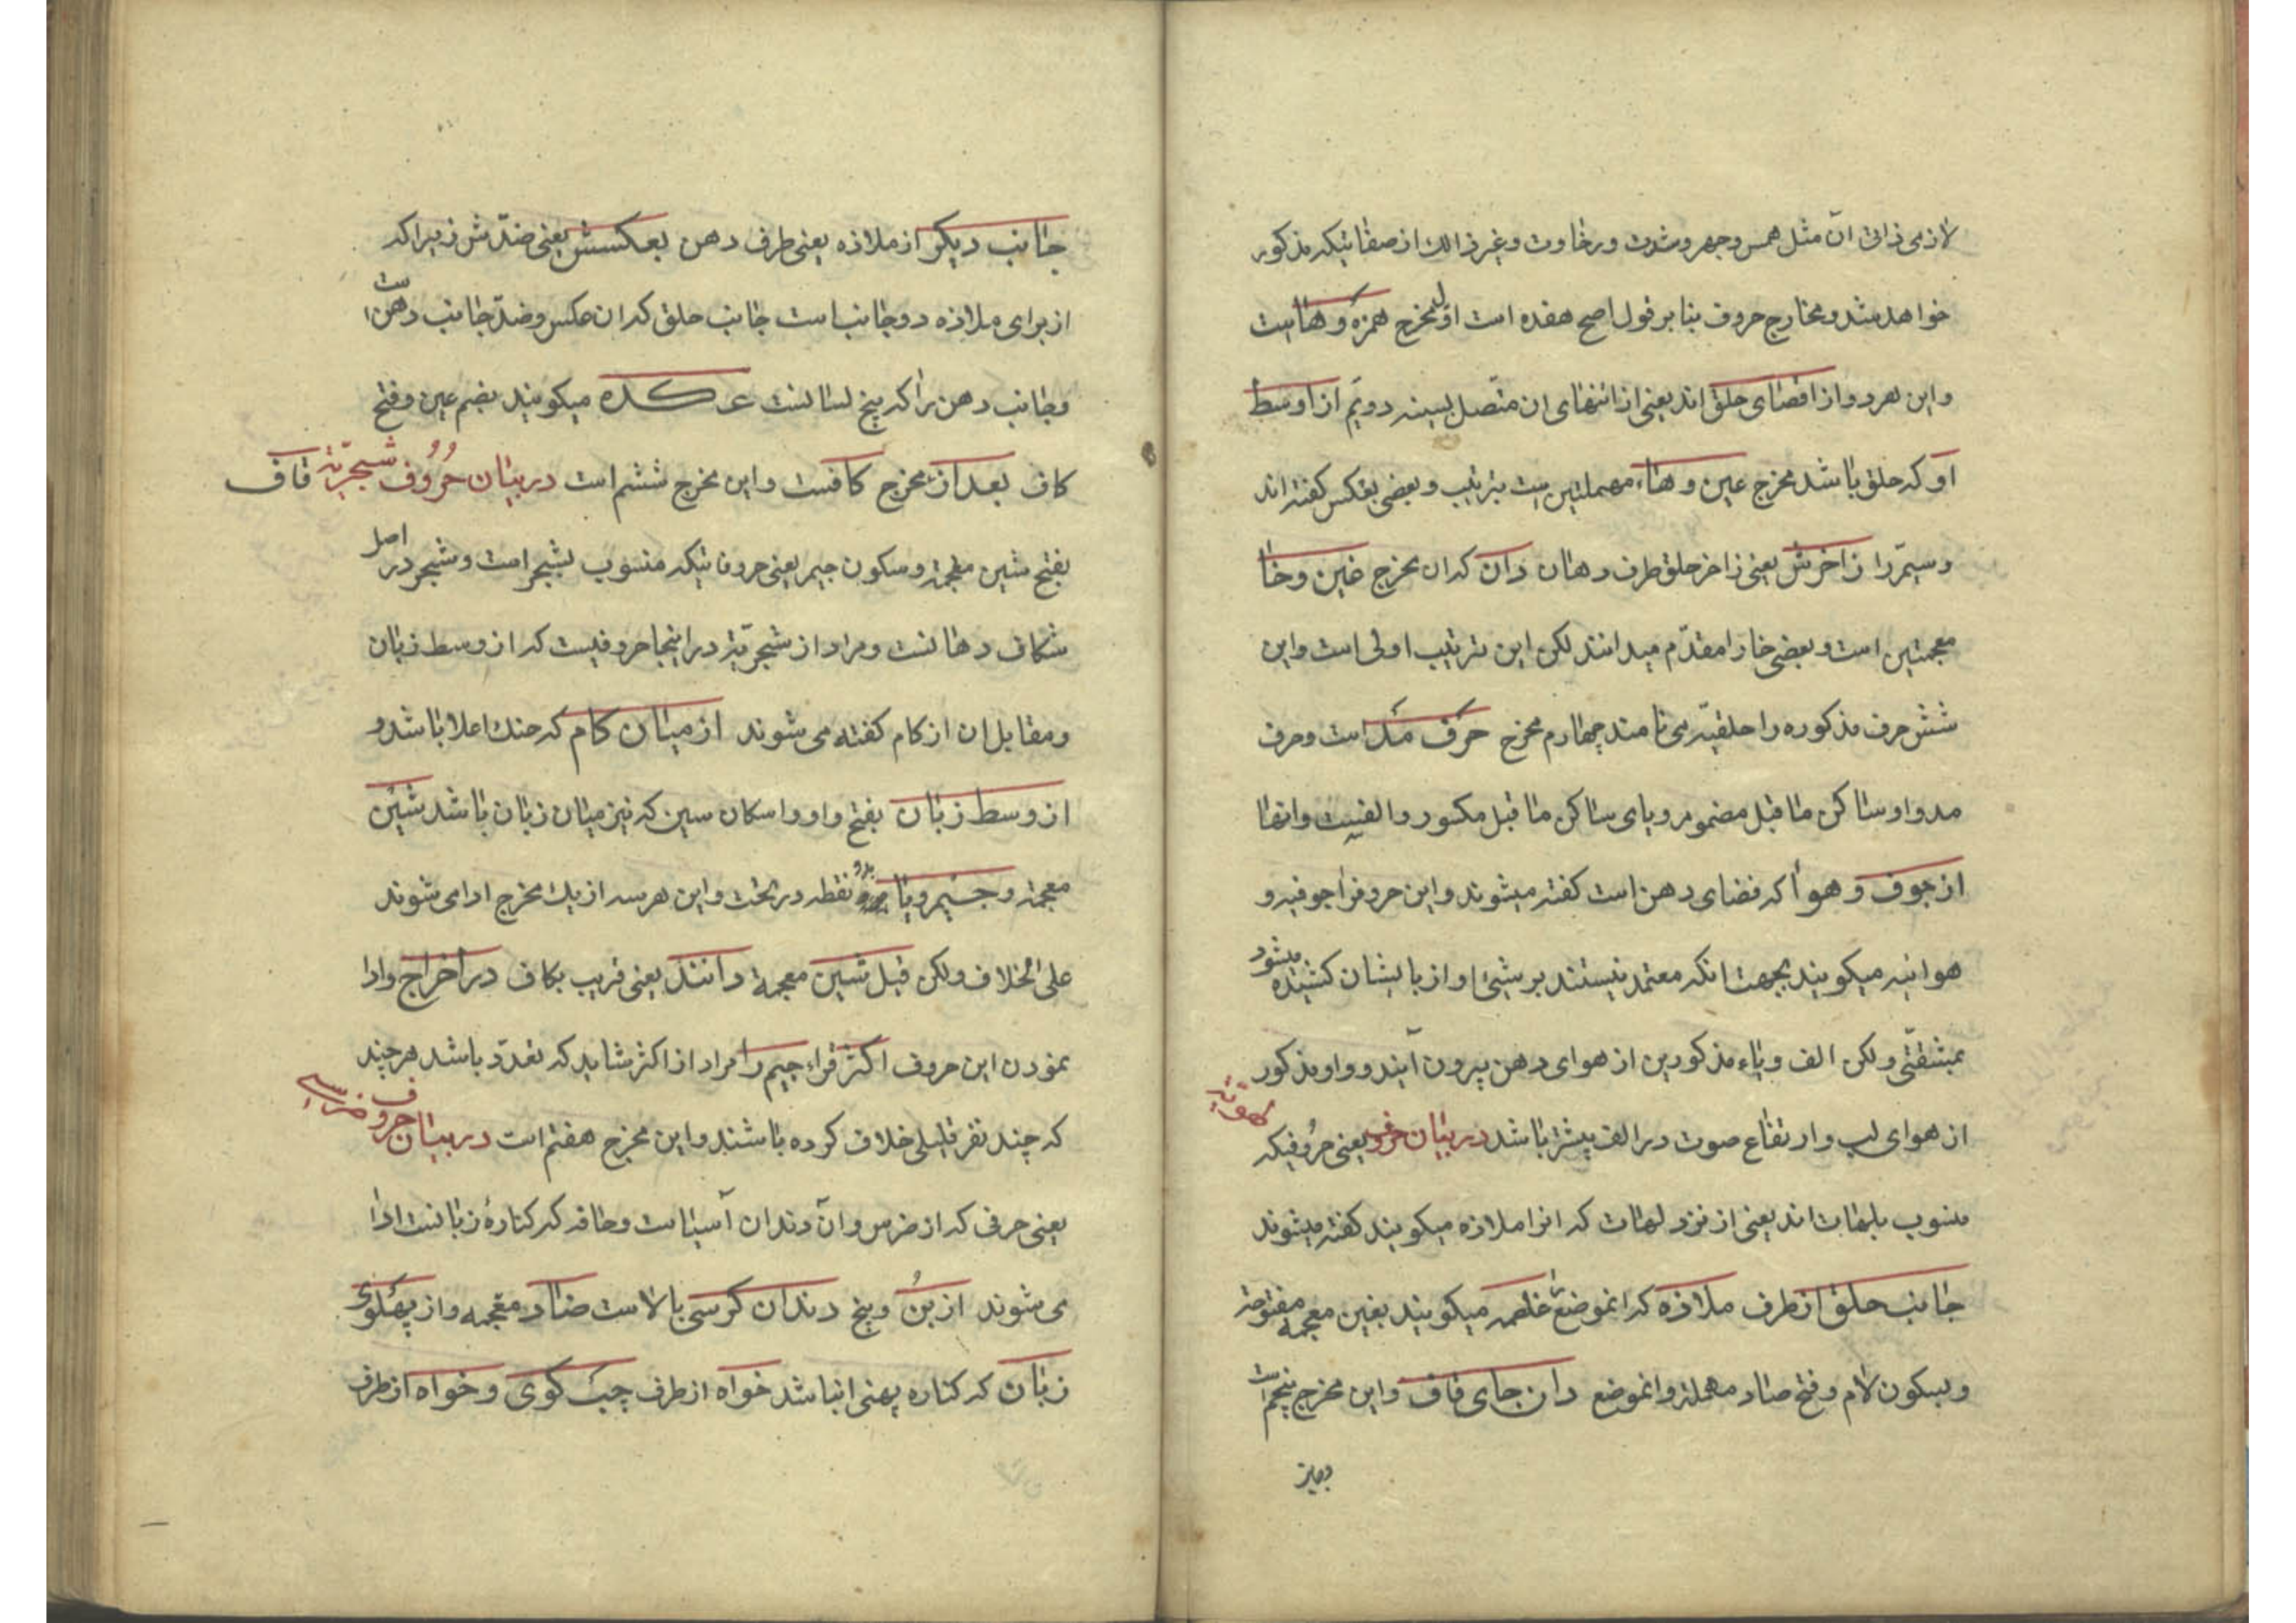 لازمی ذاتی آن مثل همس و جهر و شدت و رخاوت و غیر ذالك از صفاتیکه مذکور
خواهد شد و مخارج حروف بنا بر قول اصح هفده است اوّل مخرج همزه و هاست
و این هر دو از اقصای حلق اند یعنی از انتهای ان متّصل بسینه دویّم از اوسط
او که حلق باشد مخرج عین و حاء مهملتین است بترتیب و بعضی بعکس گفته اند
و سیّم را ز اخرش یعنی ز اخر حلق طرف دهان دان که ان مخرج غین و خا
معجمتین است و بعضی خا را مقدّم میدانند لکن این ترتیب اولی است و این
شش حرف مذکوره را حلقیّه می نامند چهارم مخرج حرف مد است و حرف
مد واو ساکن ما قبل مضموم و یای ساکن ما قبل مکسور و الفیست و انها
از جوف و هوا که فضای دهن است گفته میشوند و این حروف را جوفیه و
هوائیه میکویند بجهت انکه معتمد نیستند بر شیئ و از بالیشان کشیده میشود
بمشقتی و لکن الف و یاء مذکورین از هوای دهن بیرون آیند و واو مذکور
از هوای لب و ارتفاع صوت در الف بیشتر باشد در بیان حروف لهویّه یعنی حروفیکه
منسوب بلهات اند یعنی از نزد لهات که انرا ملاذه میکویند کفته میشوند
جانب حلق از طرف ملاذه که انموضع غلصمه میکویند بغین معجمه مفتوحه
و بسکون لام و فتح صاد مهمله و انموضع دان جای قاف و این مخرج پنجم است
جانب دیکر از ملاذه یعنی طرف دهن بعکسش یعنی ضدّش زیرا که
از برای ملاذه دو جانب است جانب حلق که ان عکس و ضدّ جانب دهن است
و جانب دهن را که بیخ لسانست عکده میکویند بضم عین و فتح
کاف بعد از مخرج کافست و این مخرج ششم است در بیان حروف شجریّه قاف
بفتح شین معجمه و سکون جیم یعنی حروفاتیکه منسوب بشجر است و شجر در اصل
شکاف دهانست و مراد از شجریّه در اینجا حروفیست که از وسط زبان
و مقابل ان از کام کفته می شوند از میان کام که حنك اعلا باشد و
از وسط زبان بفتح واو و اسکان سین که نیز میان زبان باشد شین
معجمه و جیم و یا بدو نقطه در تحت و این هر سه از یك مخرج ادا می شوند
علی الخلاف و لکن قبل شین معجمه دانند یعنی قریب بکاف در اخراج و ادا
نمودن این حروف اکثر قرّاء جیم را مراد از اکثر شاید که تعدّد باشد هر چند
که چند نفر قلیلی خلاف کرده باشند و این مخرج هفتم است در بیان حروف ضرسی
یعنی حرفی که از ضرس و آن دندان آسیاست و حافه که کنارهٔ زبانست ادا
می شوند از بن و بیخ دندان کرسی بالاست ضاد معجمه و از پهلوی
زبان که کناره پهنی انباشد خواه از طرف چپ کوی و خواه از طرف